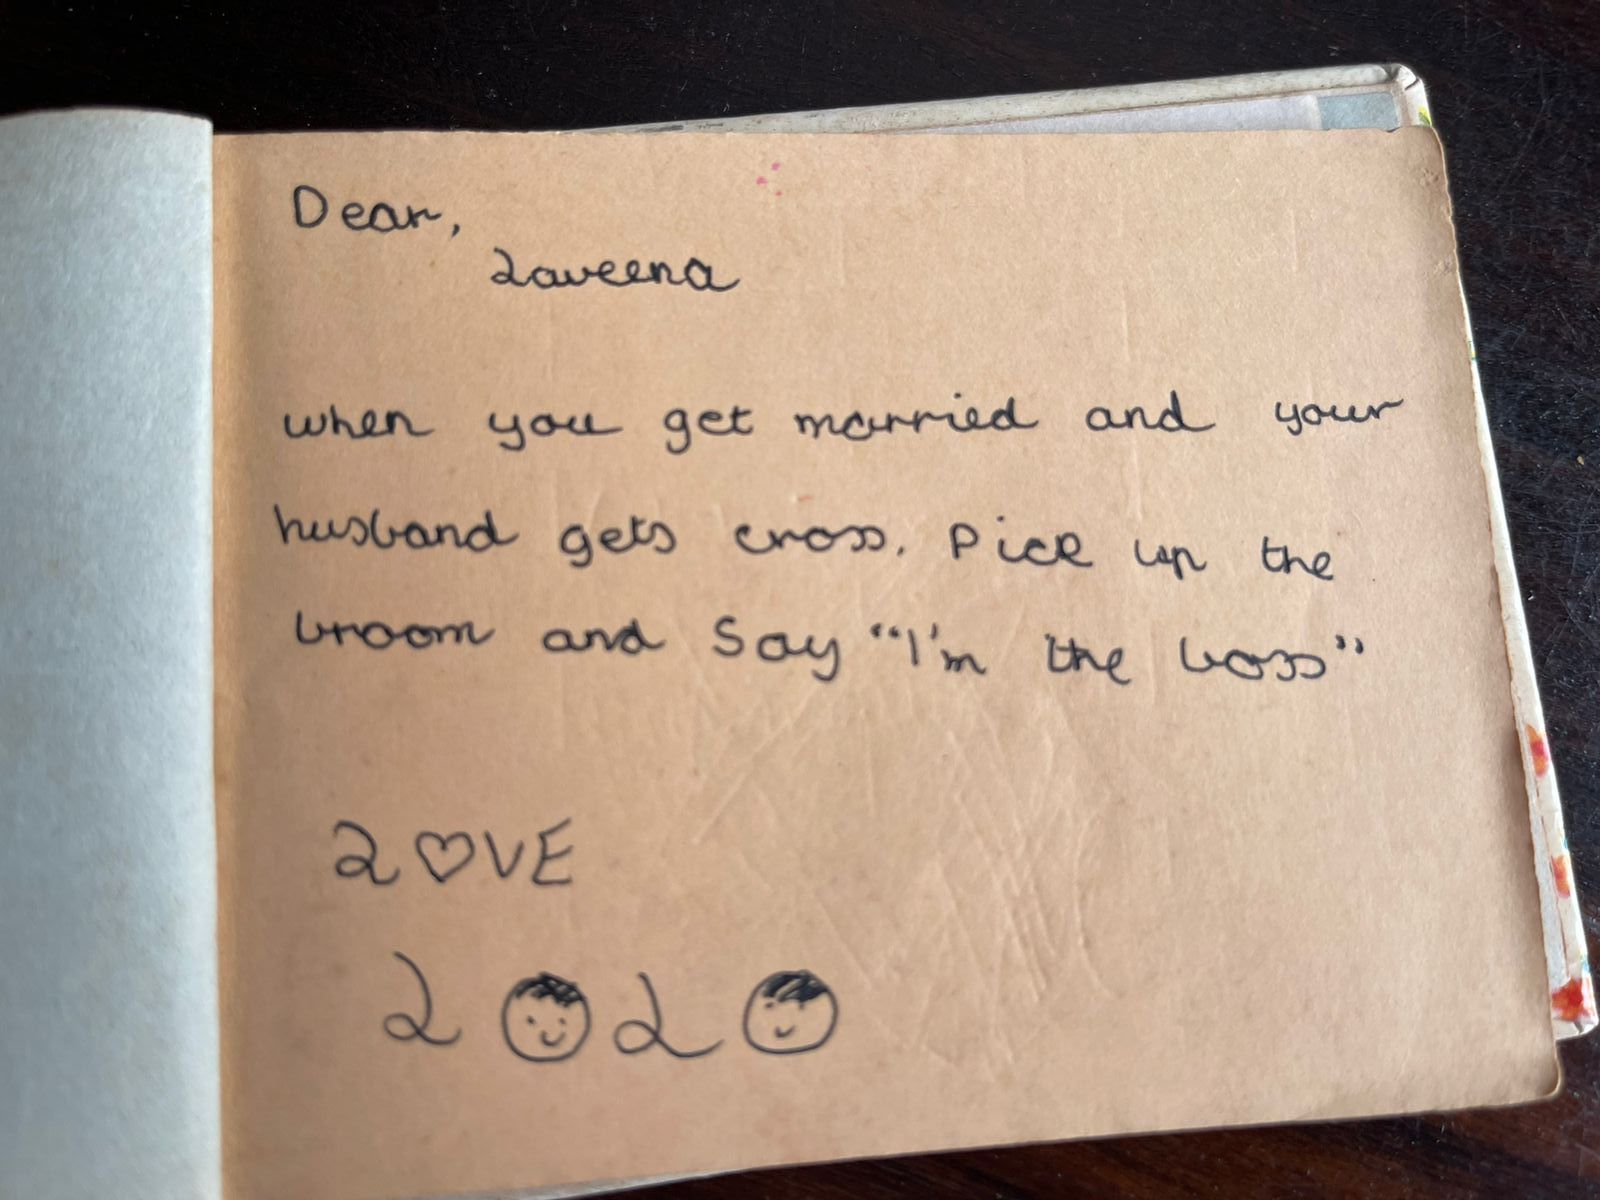 Dear,
Laveena
when you get married and your
husband gets cross. Pick up the
broom and Say "I'm the boss"
L♡VE
LOLO